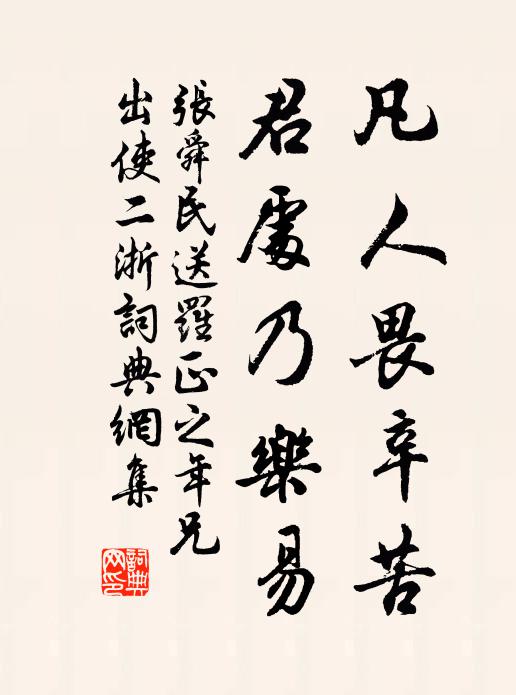 凡人畏辛苦
君處乃樂易
張舜民送羅正之年兄
出使二浙詞典網集
詞典網印